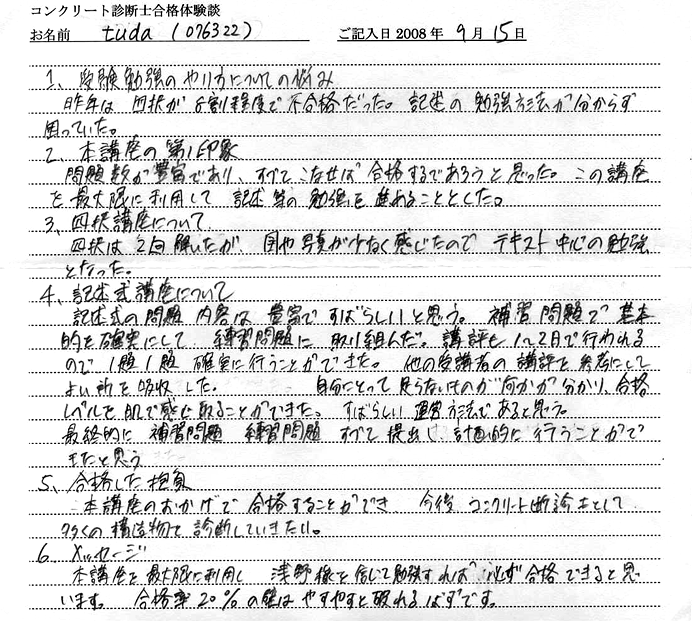 コンクリート診断士合格体験談
お名前 tuda (076322) ご記入日 2008年 9月 15日
1、受験勉強のやり方についての悩み
昨年は 四択が 6割程度で 不合格だった。記述の 勉強方法が分からず
困っていた。
2、本講座の第1印象
問題数が豊富であり、すべてこなせば 合格するであろうと思った。この講座
を最大限に利用して 記述等の勉強を進めることとした。
3、四択講座について
四択は 2回 解いたが、図や写真が少なく感じたので テキスト中心の勉強
となった。
4、記述式講座について
記述式の問題内容は 豊富で すばらしいと思う。補習問題で 基本
的を確実にして 練習問題に 取り組んだ。講評も 1〜2日で行われる
ので 1題1題 確実に行うことができた。他の受講者の講評を参考にして
よい所を吸収した。 自分にとって足らないものが何かが分かり、合格
レベルを肌で感じ取ることができた。すばらしい 運営方法であると思う。
最終的に 補習問題 練習問題 すべて提出し、計画的に行うことがで
きたと思う
5、合格した抱負
本講座のおかげで 合格することができ 今後 コンクリート断診士として
多くの構造物を 診断していきたい。
6、メッセージ
本講座を最大限に利用し 浅野様を信じて勉強すれば 必ず合格できると思
います。 合格率20%の壁は やすやすと破れるはずです。